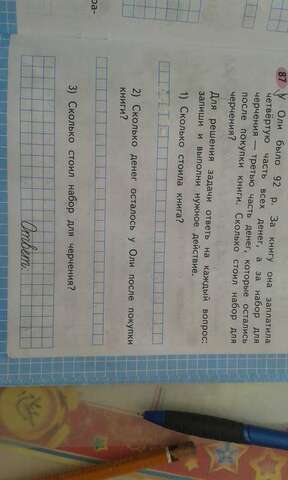 87 У Оли было 92 р. За книгу она заплатила
четвёртую часть всех денег, а за набор для
черчения — третью часть денег, которые остались
после покупки книги. Сколько стоил набор для
черчения?
Для решения задачи ответь на каждый вопрос:
запиши и выполни нужное действие.
1) Сколько стоила книга?
2) Сколько денег осталось у Оли после покупки
книги?
3) Сколько стоил набор для черчения?
Ответ
ра-